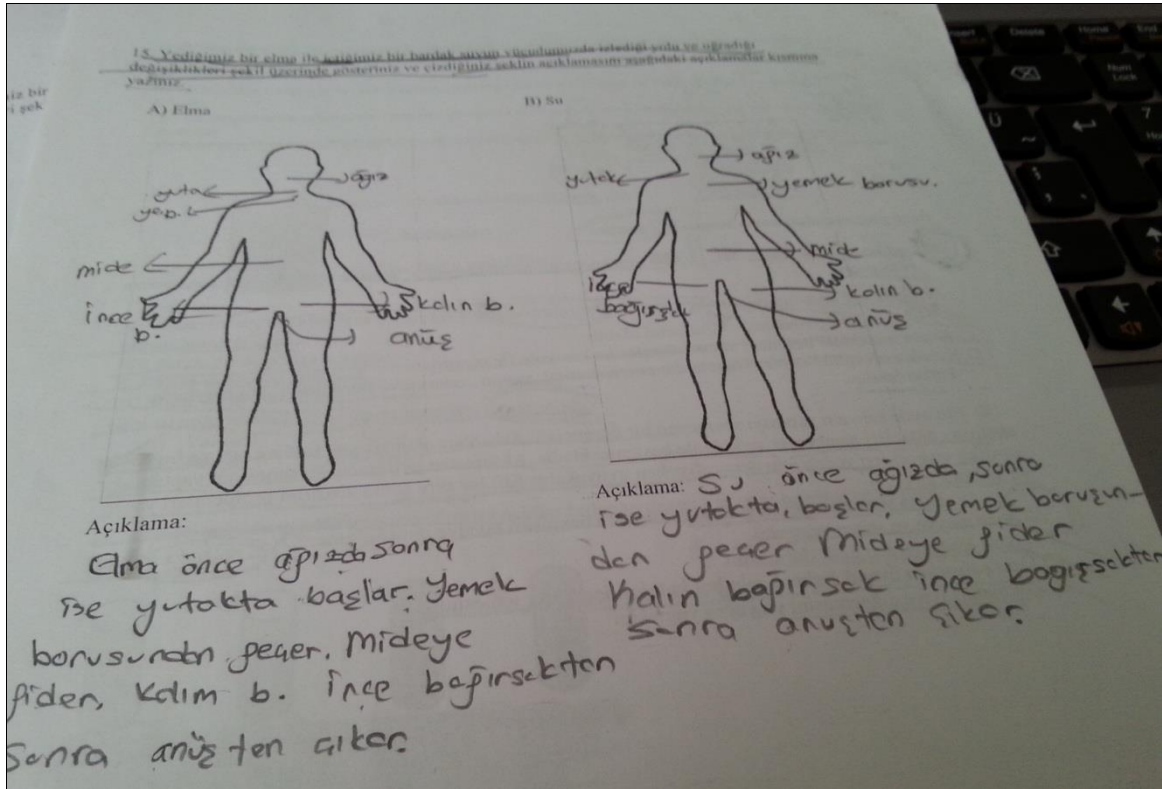 iz bir
i şek
15. Yediğimiz bir elma ile içtiğimiz bir bardak suyun vücudumuzda izlediği yolu ve uğradığı
değişiklikleri şekil üzerinde gösteriniz ve çizdiğiniz şeklin açıklamasını aşağıdaki açıklamalar kısmına
yazınız.
A) Elma
ağız
yuta
yeb.
mide
ince
b.
kalın b.
anüş
Açıklama:
Elma önce ağızda sonra
ise yutakta başlar. Yemek
borusundan geçer. Mideye
gider, kalım b. ince bağırsakten
Sonra anüşten çıkar.
B) Su
ağız
yutak
yemek borusu.
mide
ince
bağırsak
kalın b.
anüş
Açıklama: Su önce ağızda, sonra
ise yutakta, başlar, yemek borusun-
dan geçer Mideye gider
Kalın bağırsak ince bagırsakten
Sonra anuşten çıkar.
Delete
Home
End
Num
Lock
Ü
~
7